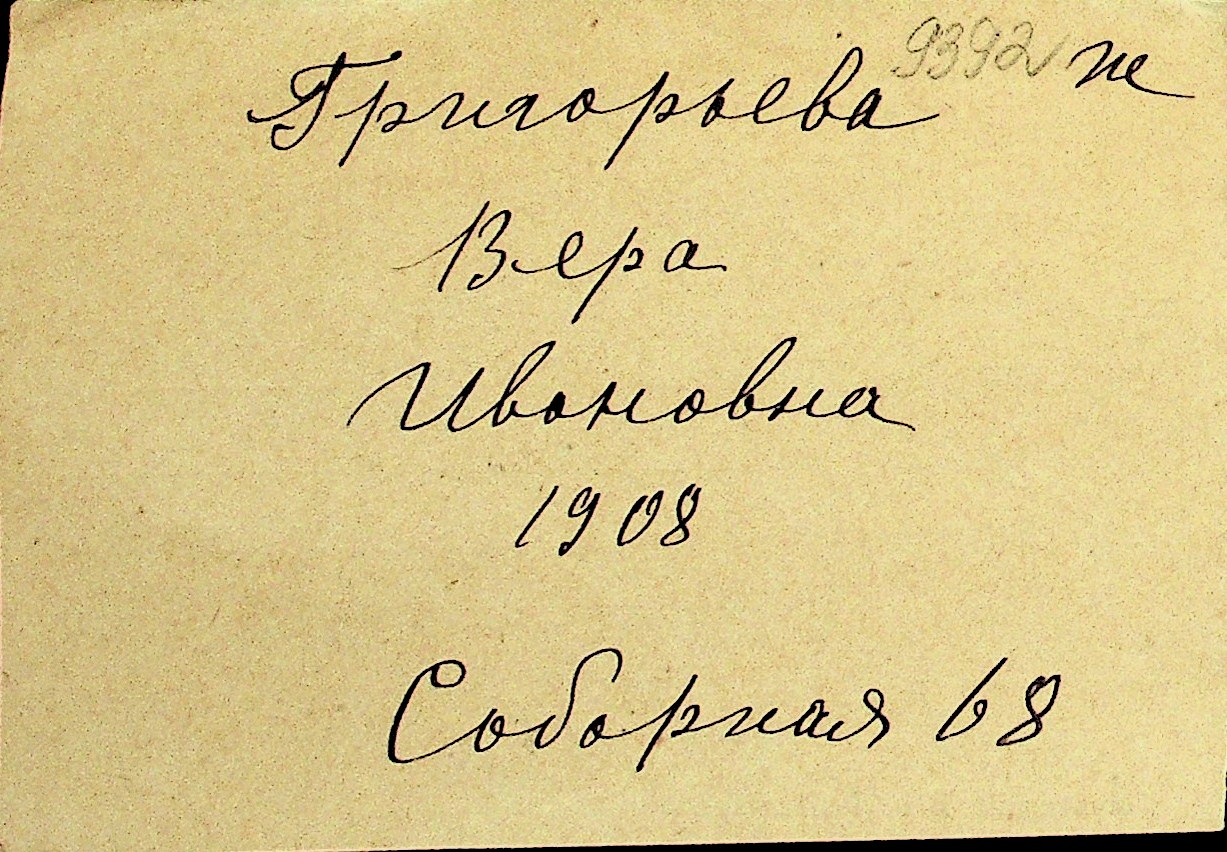 9392 ж
Григорьева
Вера
Ивановна
1908
Соборная 68